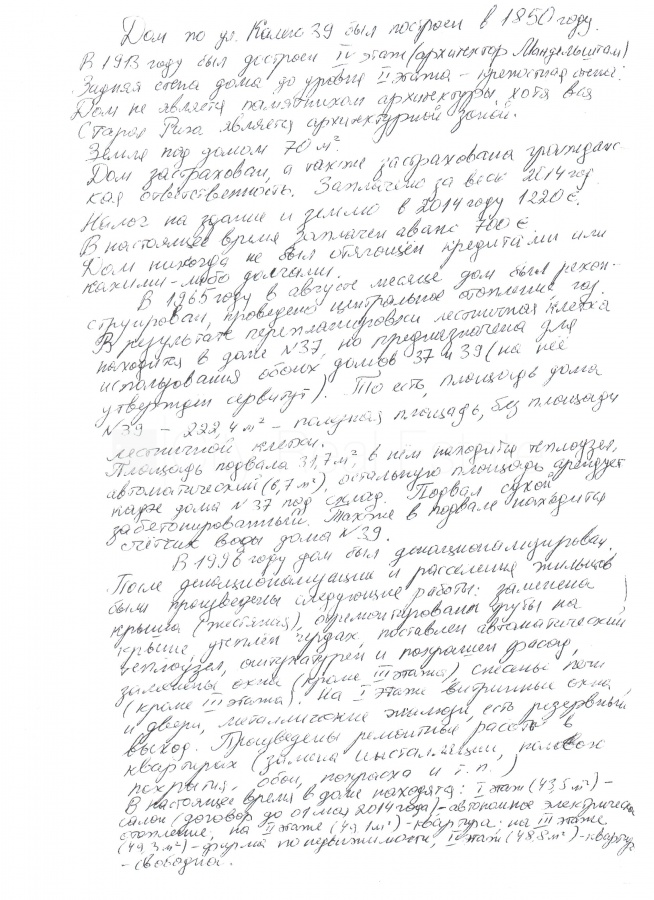 Дом по ул. Калею 39 был построен в 1850 году.
В 1913 году был достроен IV этаж (архитектор Мандельштам)
Задняя стена дома до уровня II этажа – крепостная стена.
Дом не является памятником архитектуры, хотя вся
Старая Рига является архитектурной зоной.
Земля под домом 70 м².
Дом застрахован, а также застрахована гражданс-
кая ответственность. Заплачено за весь 2014 год.
Налог на здание и землю в 2014 году 1220 €.
В настоящее время заплачен аванс 700 €
Дом никогда не был отягощён кредитами или
какими-либо долгами.
В 1965 году в августе месяце дом был рекон-
струирован, проведено центральное отопление, газ.
В результате перепланировки лестничная клетка
находится в доме №37, но предназначена для
использования обоих домов 37 и 39 (на неё
утверждён сервитут). То есть, площадь дома
№39 – 222,4 м² – полезная площадь, без площади
лестничной клетки.
Площадь подвала 31,7 м², в нем находится теплоузел,
автоматический (6,7 м²), остальную площадь арендует
дома №37 под склад. Подвал сухой
забетонированный. Также в подвале находится
счётчик воды дома №39.
В 1996 году дом был денационализирован.
После денационализации и расселения жильцов
были произведены следующие работы: заменена
крыша (жестяная), отремонтированы трубы на
крыше, утеплён чердак, поставлен автоматический
теплоузел, оштукатурен и покрашен фасад,
заменены окна (кроме III этажа), сделаны печи
(кроме III этажа). На I этаже витринные окна
и двери, металлические жалюзи, есть резервный
выход. Произведены ремонтные работы в
квартирах (замена инсталляции, половых
покрытия, обои, покраска и т.п.)
В настоящее время в доме находятся: I этаж (43,5 м²) –
салон (договор до 01 мая 2014 года) – автономное электрическое
отопление; на II этаже (49,1 м²) – квартира; на III этаже
(49,3 м²) – фирма по недвижимости; IV этаж (48,8 м²) – квартира
– свободна.